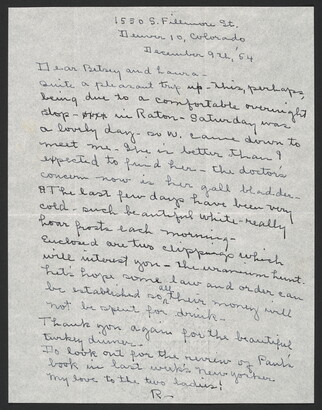 1550 S. Fillmore St.
Denver 10, Colorado
December 9th, '54
Dear Betsey and Laura -
Quite a pleasant trip up - this, perhaps,
being due to a comfortable overnight
stop - in Raton - Saturday was
a lovely day - so W. came down to
meet me. She is better than I
expected to find her - the doctors
concern now is her gall bladder -
The last few days have been very
cold - such beautiful white - really
hoar frosts each morning -
Enclosed are two clippings which
will interest you - the uranium hunt.
Let's hope some law and order can
be established so all their money will
not be spent for drink.
Thank you again for the beautiful
turkey dinner -
Do look out for the review of Paul's
book in last week's New Yorker
My love to the two ladies!
R -